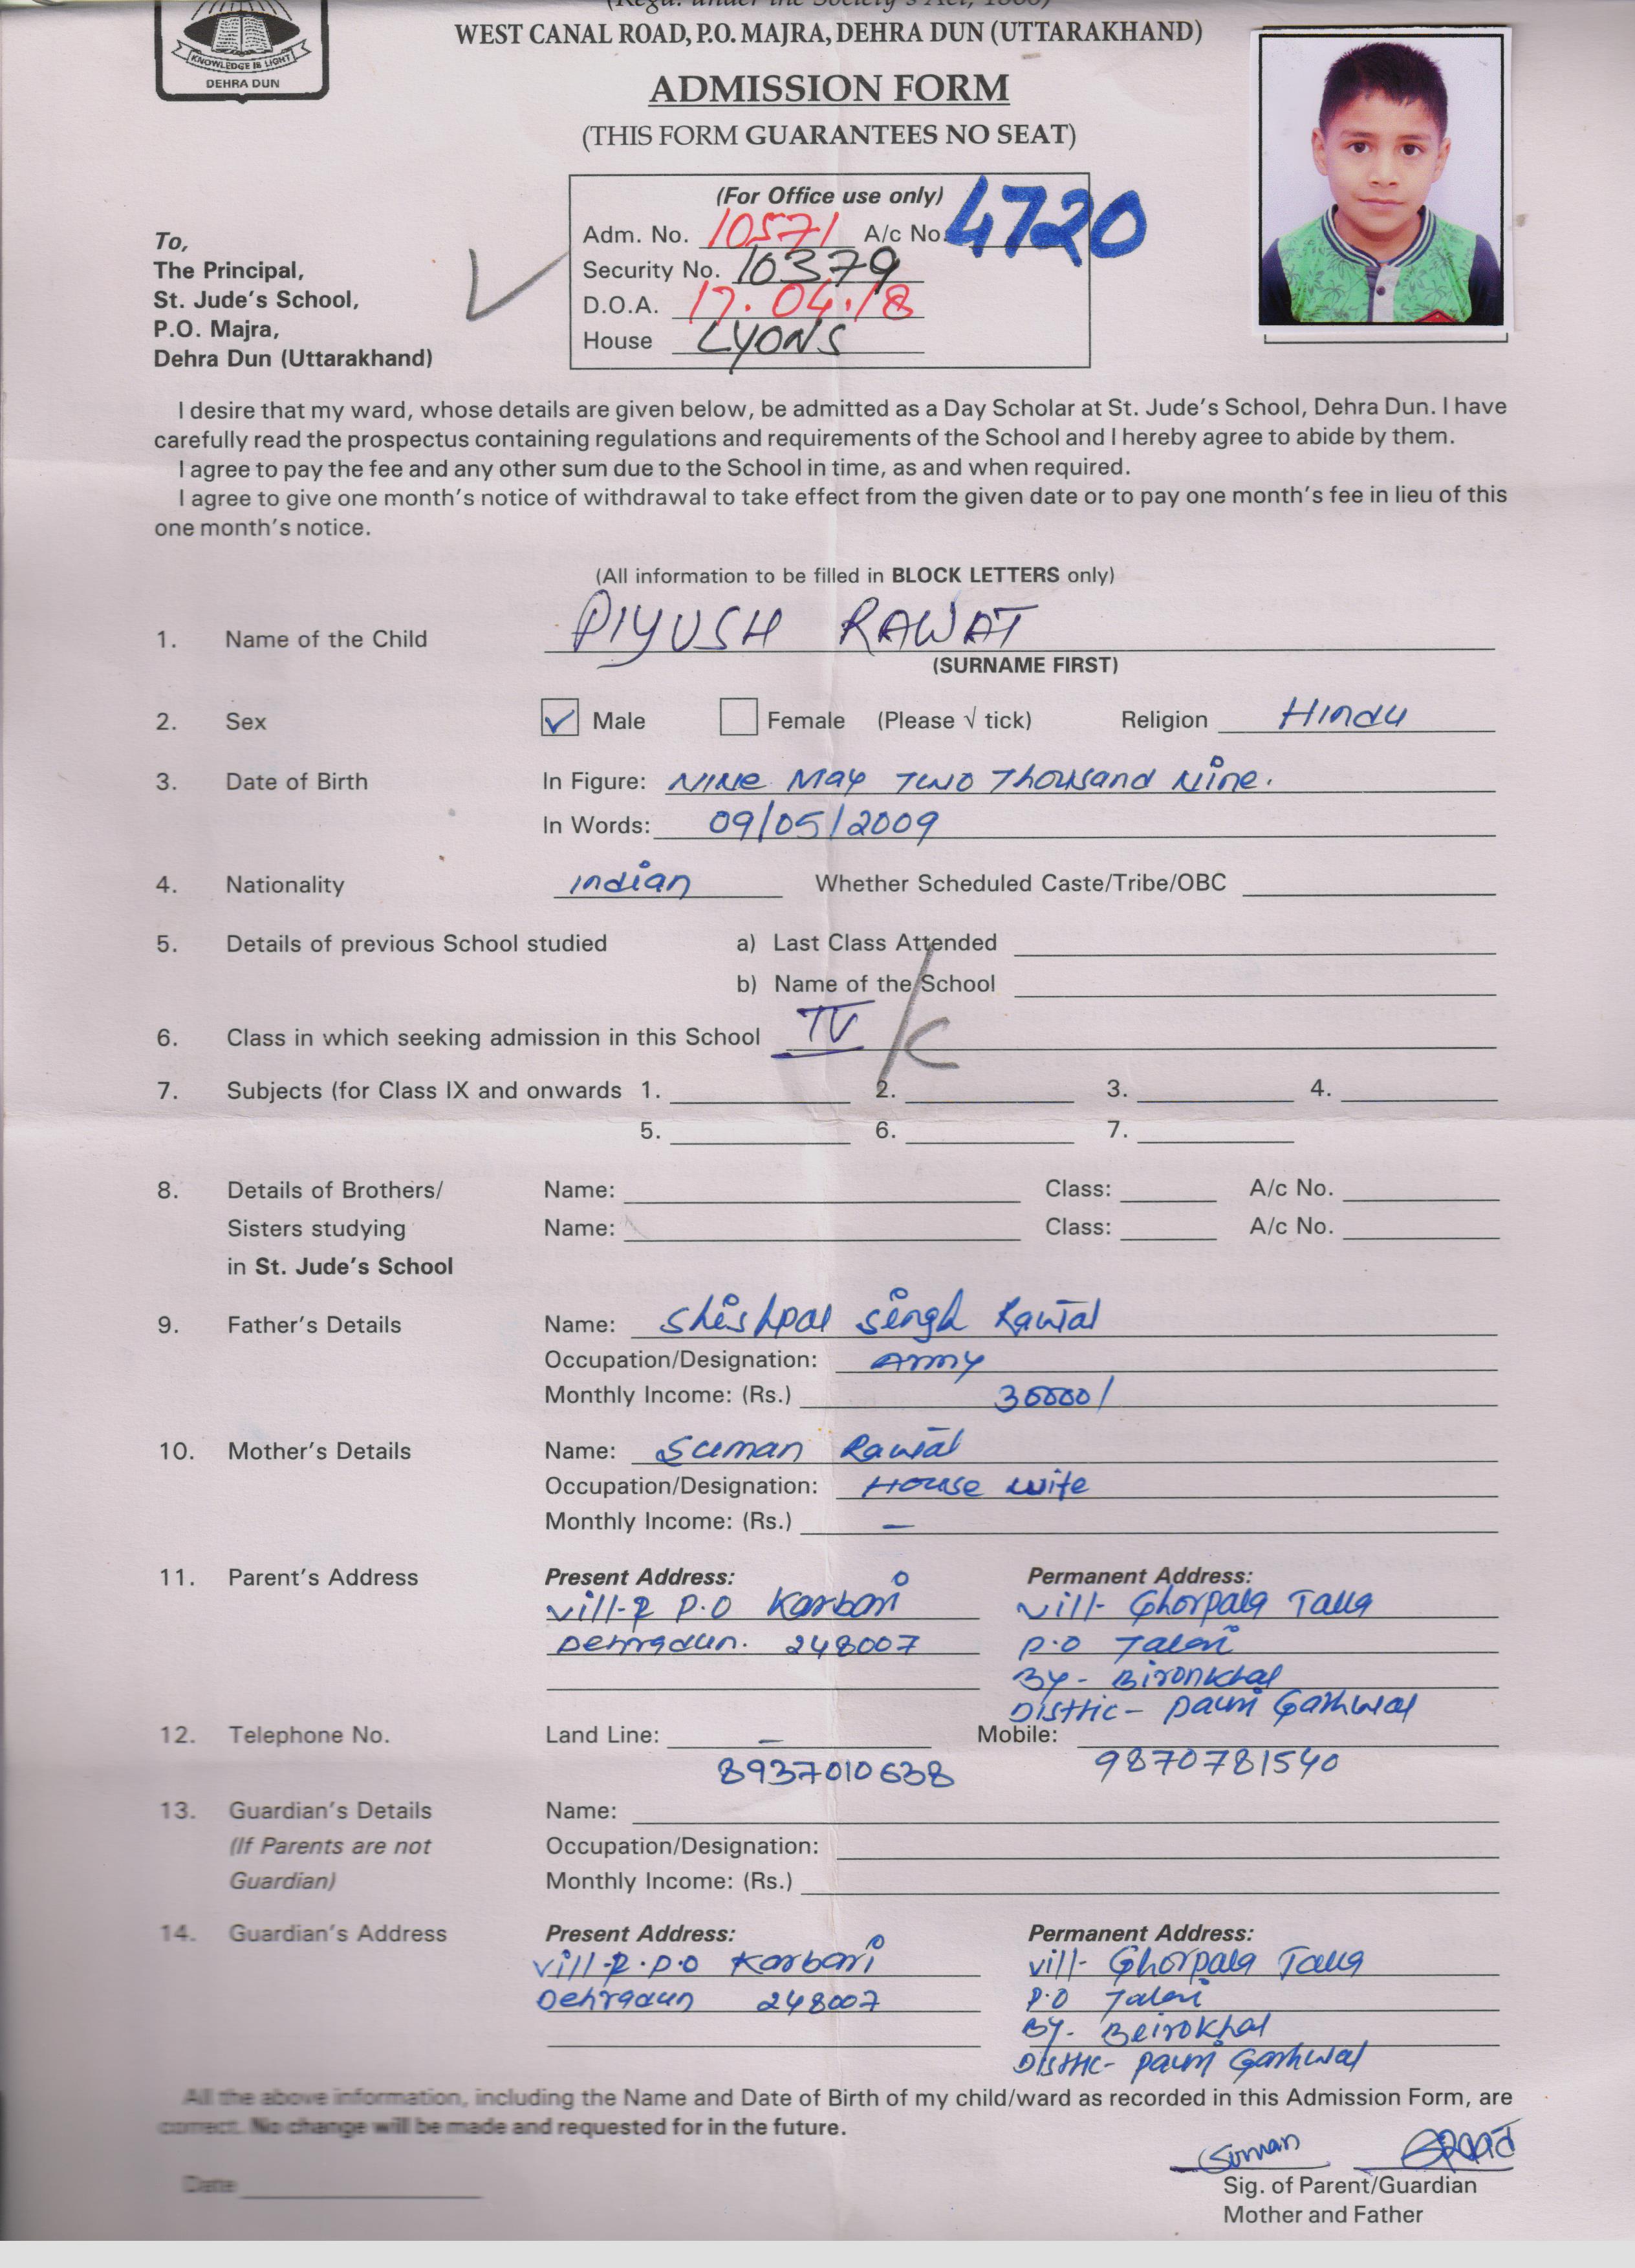 (Regd. under the Society's Act, 1860)
WEST CANAL ROAD, P.O. MAJRA, DEHRA DUN (UTTARAKHAND)
KNOWLEDGE IS LIGHT
DEHRA DUN
ADMISSION FORM
(THIS FORM GUARANTEES NO SEAT)
(For Office use only)
Adm. No. 10571 A/c No. 4720
Security No. 10379
D.O.A. 17.04.18
House LYONS
To,
The Principal,
St. Jude's School,
P.O. Majra,
Dehra Dun (Uttarakhand)
I desire that my ward, whose details are given below, be admitted as a Day Scholar at St. Jude's School, Dehra Dun. I have
carefully read the prospectus containing regulations and requirements of the School and I hereby agree to abide by them.
I agree to pay the fee and any other sum due to the School in time, as and when required.
I agree to give one month's notice of withdrawal to take effect from the given date or to pay one month's fee in lieu of this
one month's notice.
(All information to be filled in BLOCK LETTERS only)
1. Name of the Child PIYUSH RAWAT
(SURNAME FIRST)
2. Sex ✓ Male Female (Please √ tick) Religion Hindu
3. Date of Birth In Figure: Nine May Two Thousand Nine.
In Words: 09/05/2009
4. Nationality Indian Whether Scheduled Caste/Tribe/OBC
5. Details of previous School studied a) Last Class Attended
b) Name of the School
6. Class in which seeking admission in this School IV K
7. Subjects (for Class IX and onwards 1. 2. 3. 4.
5. 6. 7.
8. Details of Brothers/ Name: Class: A/c No.
Sisters studying Name: Class: A/c No.
in St. Jude's School
9. Father's Details Name: Shishpal Singh Rawat
Occupation/Designation: Army
Monthly Income: (Rs.) 30000/
10. Mother's Details Name: Suman Rawat
Occupation/Designation: House wife
Monthly Income: (Rs.) —
11. Parent's Address Present Address: Permanent Address:
Vill-& P.O Karbari Vill- Ghorpala Talla
Dehradun. 248007 P.O Talai
By- Bironkhal
Disttic- Pauri Garhwal
12. Telephone No. Land Line: — Mobile:
8937010638 9870781540
13. Guardian's Details Name:
(If Parents are not Occupation/Designation:
Guardian) Monthly Income: (Rs.)
14. Guardian's Address Present Address: Permanent Address:
Vill-&.P.O Karbari Vill- Ghorpala Talla
Dehradun 248007 P.O Talai
By- Beirokhal
Disttic- Pauri Garhwal
All the above information, including the Name and Date of Birth of my child/ward as recorded in this Admission Form, are
correct. No change will be made and requested for in the future.
Suman
Date Sig. of Parent/Guardian
Mother and Father